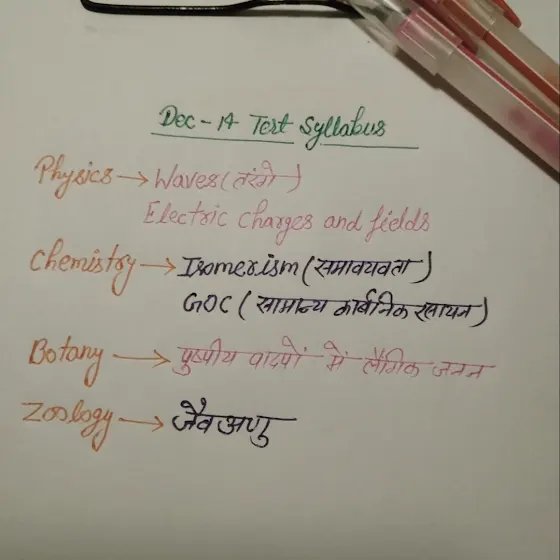 Dec - 14 Test Syllabus
Physics → Waves (तरंगे)
Electric charges and fields
Chemistry → Isomerism (समावयवता)
GOC (सामान्य कार्बनिक रसायन)
Botany → पुष्पीय पादपों में लैंगिक जनन
Zoology → जैव अणु